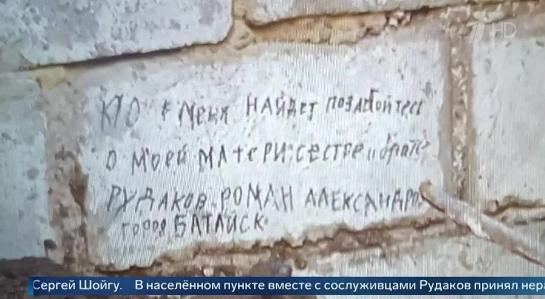 HD
КТО МЕНЯ НАЙДЕТ ПОЗАБОТТЕСЬ
О МОЕЙ МАТЕРИ СЕСТРЕ И БРАТЕ
РУДАКОВ РОМАН АЛЕКСАНДРО
ГОРОД БАТАЙСК
Сергей Шойгу. В населённом пункте вместе с сослуживцами Рудаков принял нер